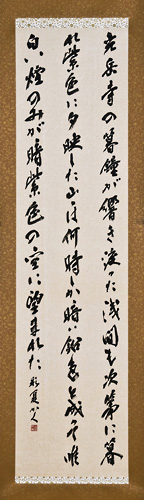 安楽寺の暮鐘が響き渡つた浅間も次第に暮
れ紫色に夕映した山は何時しか暗い鉛色と成て唯
白い煙のみが暗紫色の空に望まれた